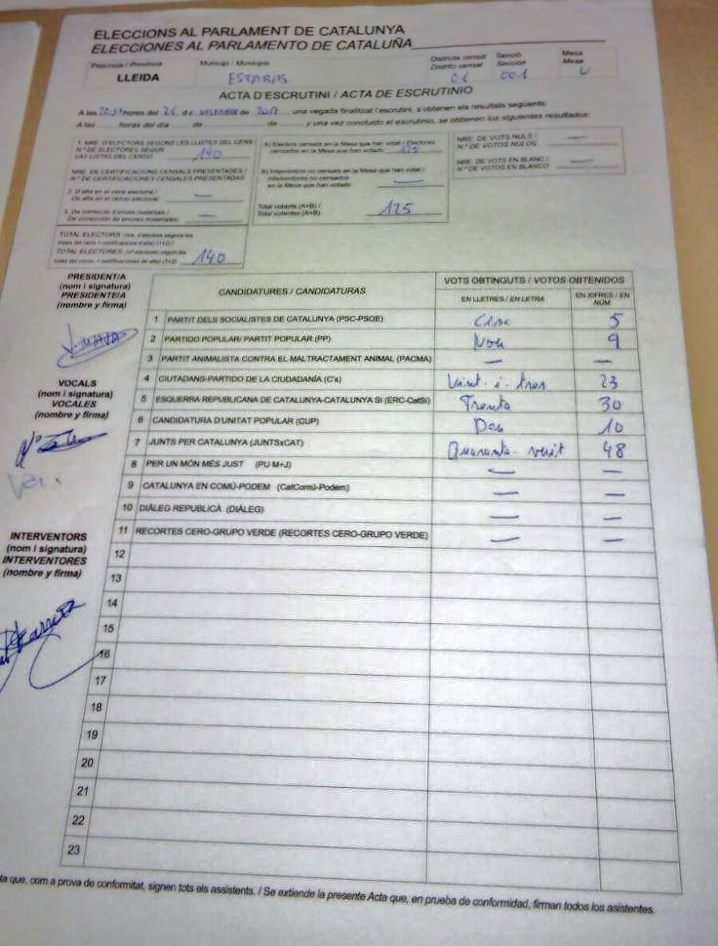 ELECCIONS AL PARLAMENT DE CATALUNYA
ELECCIONES AL PARLAMENTO DE CATALUÑA
Província / Provincia Municipi / Municipio Districte censal Secció Mesa
Distrito censal Sección Mesa
LLEIDA ESTARÀS 01 001 U
ACTA D'ESCRUTINI / ACTA DE ESCRUTINIO
A les hores del de DESEMBRE de 2017, una vegada finalitzat l'escrutini, s'obtenen els resultats següents:
A las horas del día de de y una vez concluido el escrutinio, se obtienen los siguientes resultados:
1. NRE. D'ELECTORS SEGONS LES LLISTES DEL CENS
N.º DE ELECTORES SEGÚN
LAS LISTAS DEL CENSO 140
NRE. DE CERTIFICACIONS CENSALS PRESENTADES /
N.º DE CERTIFICACIONES CENSALES PRESENTADAS
2. D'alta en el cens electoral /
De alta en el censo electoral —
3. De correcció d'errors materials /
De corrección de errores materiales —
TOTAL ELECTORS
TOTAL ELECTORES 140
A) Electors censats en la Mesa que han votat / Electores
censados en la Mesa que han votado 125
B) Interventors no censats en la Mesa que han votat /
Interventores no censados
en la Mesa que han votado —
Total votants (A+B) /
Total votantes (A+B) 125
NRE. DE VOTS NULS /
N.º DE VOTOS NULOS —
NRE. DE VOTS EN BLANC /
N.º DE VOTOS EN BLANCO —
PRESIDENT/A
(nom i signatura)
PRESIDENTE/A
(nombre y firma)
VOCALS
(nom i signatura)
VOCALES
(nombre y firma)
INTERVENTORS
(nom i signatura)
INTERVENTORES
(nombre y firma)
CANDIDATURES / CANDIDATURAS VOTS OBTINGUTS / VOTOS OBTENIDOS
EN LLETRES / EN LETRA EN XIFRES / EN NÚM.
1 PARTIT DELS SOCIALISTES DE CATALUNYA (PSC-PSOE) Cinc 5
2 PARTIDO POPULAR/ PARTIT POPULAR (PP) Nou 9
3 PARTIT ANIMALISTA CONTRA EL MALTRACTAMENT ANIMAL (PACMA) — —
4 CIUTADANS-PARTIDO DE LA CIUDADANÍA (C's) Vint-i-tres 23
5 ESQUERRA REPUBLICANA DE CATALUNYA-CATALUNYA SÍ (ERC-CatSí) Trenta 30
6 CANDIDATURA D'UNITAT POPULAR (CUP) Deu 10
7 JUNTS PER CATALUNYA (JUNTSxCAT) Quaranta-vuit 48
8 PER UN MÓN MÉS JUST (PUM+J) — —
9 CATALUNYA EN COMÚ-PODEM (CatComú-Podem) — —
10 DIÀLEG REPUBLICÀ (DIÀLEG) — —
11 RECORTES CERO-GRUPO VERDE (RECORTES CERO-GRUPO VERDE) — —
12
13
14
15
16
17
18
19
20
21
22
23
que, com a prova de conformitat, signen tots els assistents. / Se extiende la presente Acta que, en prueba de conformidad, firman todos los asistentes.